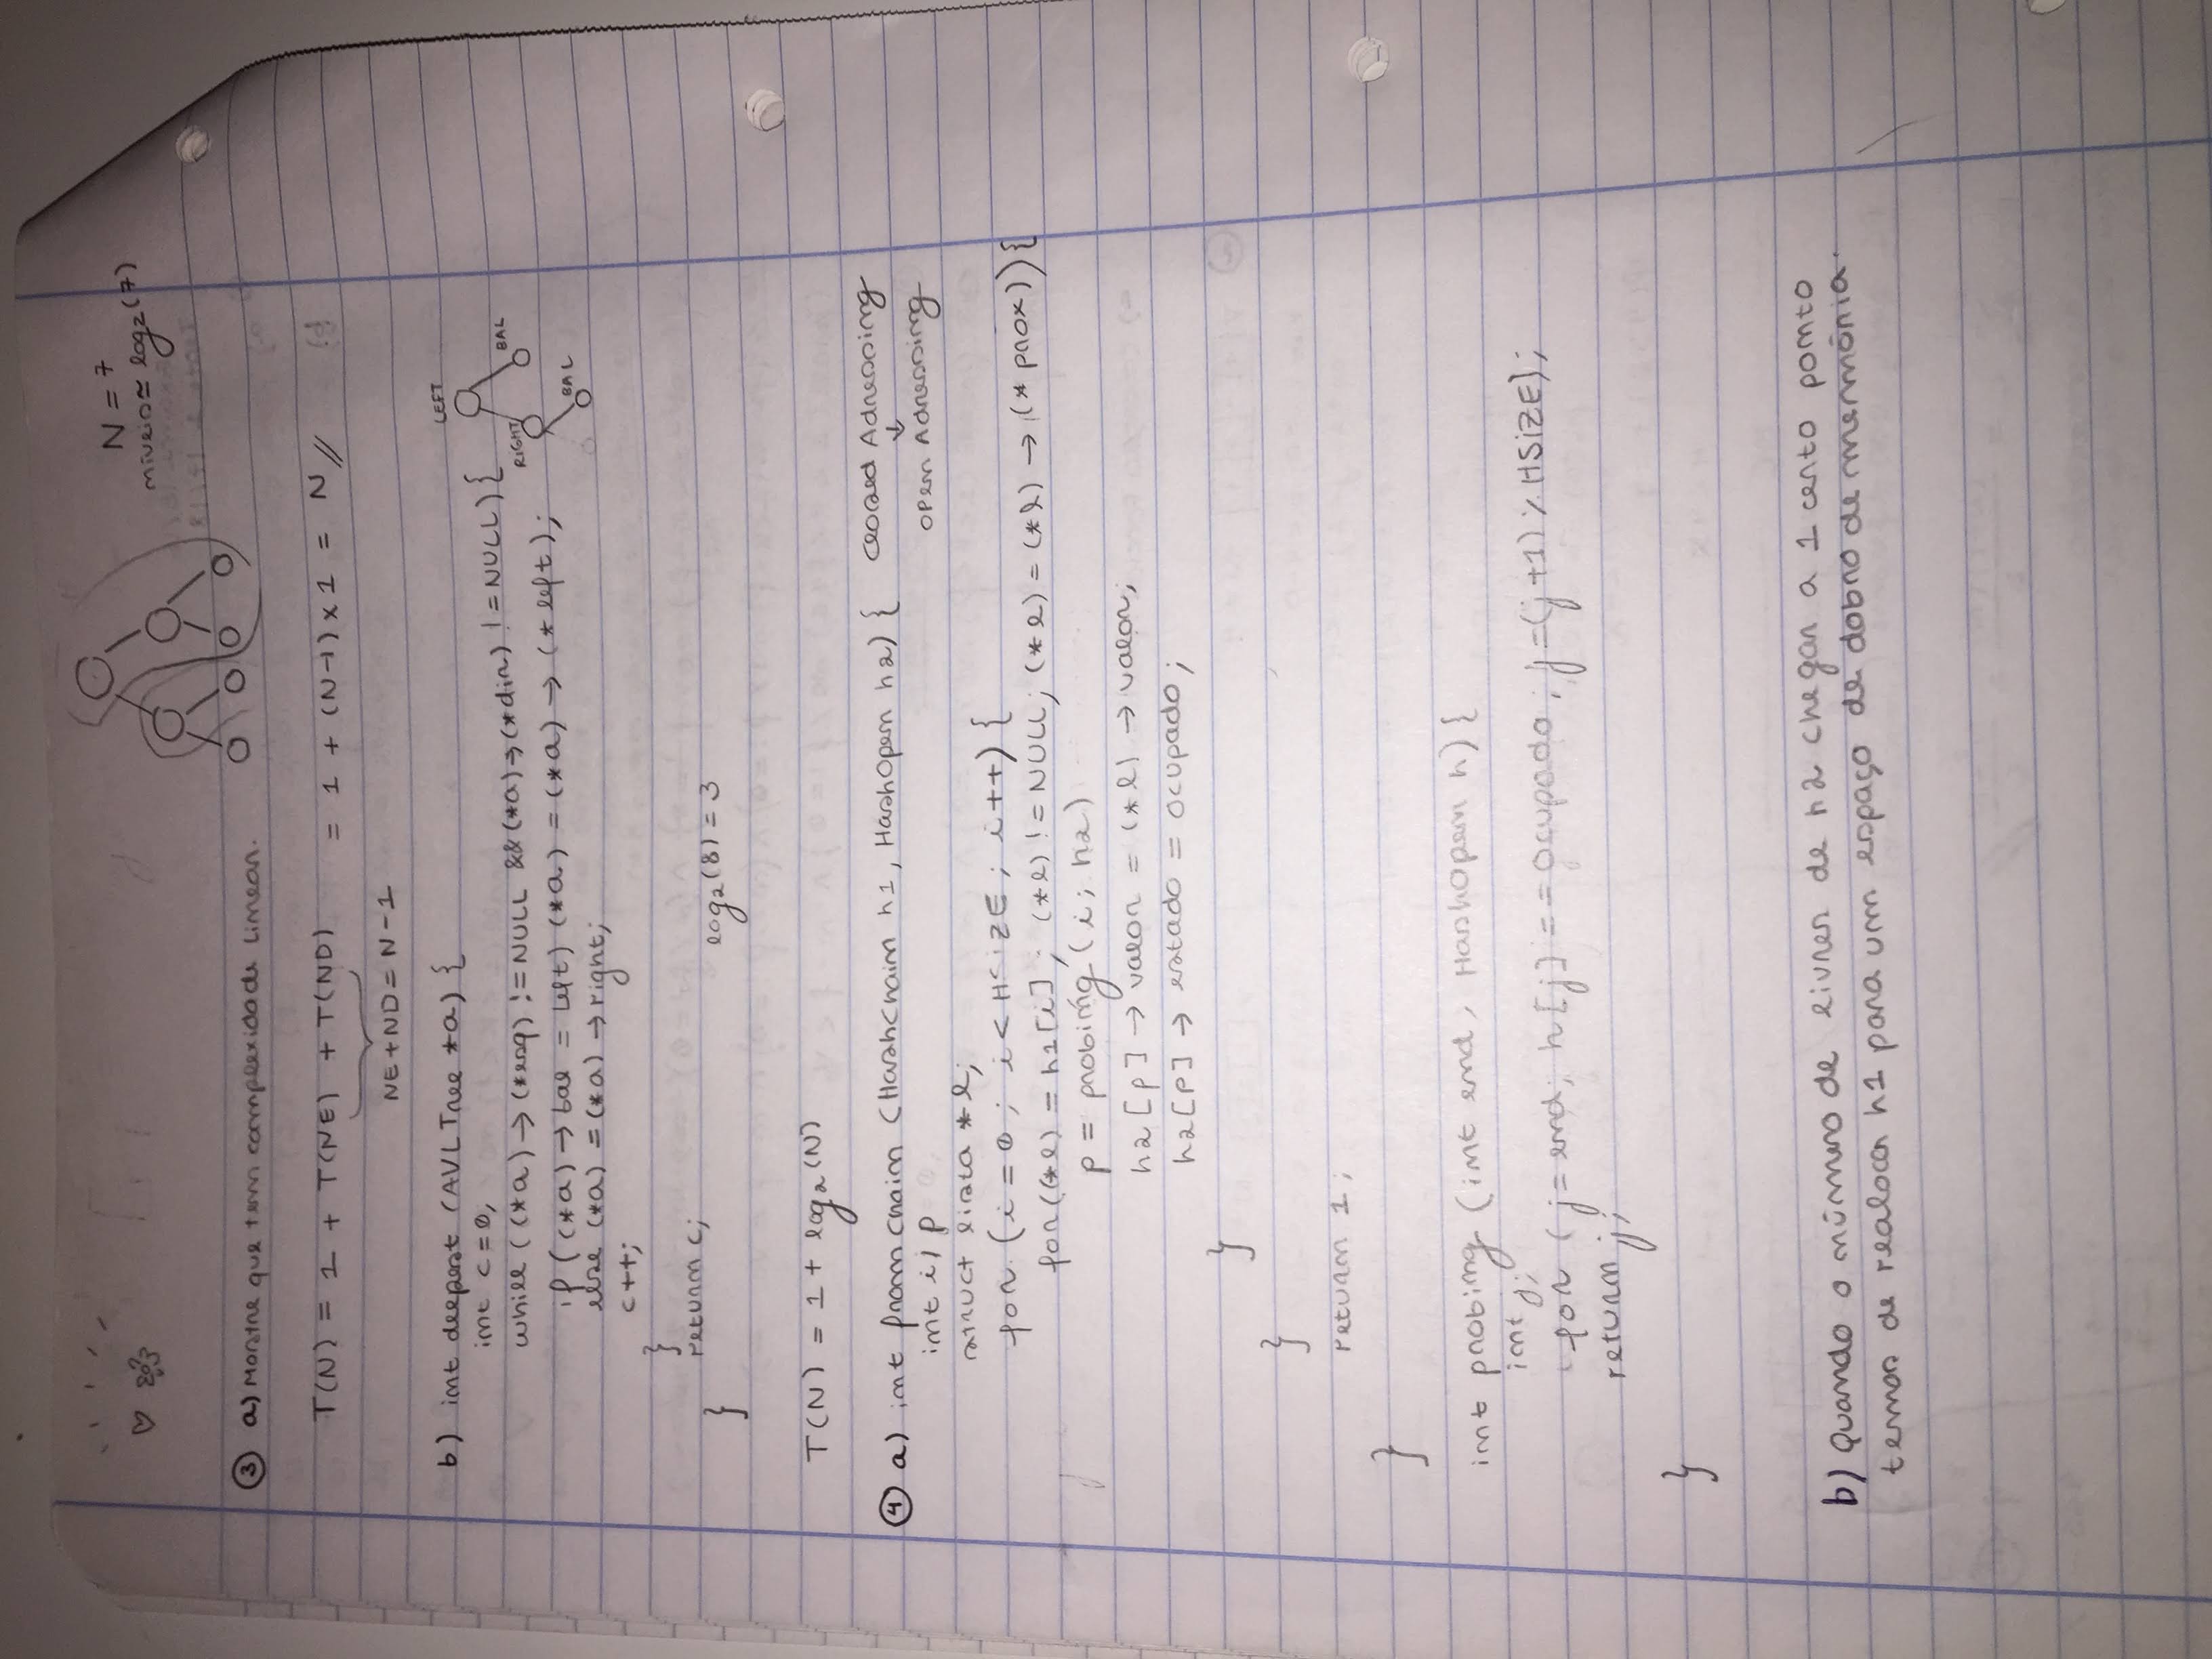 N = 7
níveis ≃ log2(7)
③ a) Mostre que tem complexidade linear.
T(N) = 1 + T(NE) + T(ND) = 1 + (N-1) x 1 = N //
NE + ND = N - 1
b) int deepest (AVLTree *a) {
int c = 0;
while ((*a) → (*esq) != NULL && (*a) → (*dir) != NULL) {
if ((*a) → bal = Left) (*a) = (*a) → (*left);
else (*a) = (*a) → right;
c++;
}
return c;
}
LEFT
RIGHT
BAL
BAL
log2(8) = 3
T(N) = 1 + log2(N)
④ a) int fromChain (HashChain h1, HashOpen h2) {
Closed Adressing
↓
Open Adressing
int i, p
struct lista *l;
for (i = 0; i < HSIZE; i++) {
for ((*l) = h1[i]; (*l) != NULL; (*l) = (*l) → (* prox)) {
p = probing (i; h2)
h2[p] → valor = (*l) → valor;
h2[p] → estado = ocupado;
}
}
return 1;
}
int probing (int end, HashOpen h) {
int j;
for (j = end; h[j] == ocupado; j = (j+1) % HSIZE);
return j;
}
b) Quando o número de livres de h2 chegar a 1 certo ponto
temos de realocar h1 para um espaço de dobro de memória.